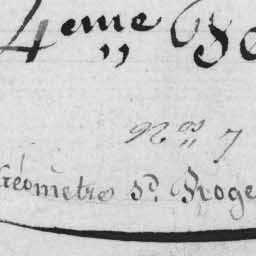 4eme
Nos 7
Géomètre Sr. Roge